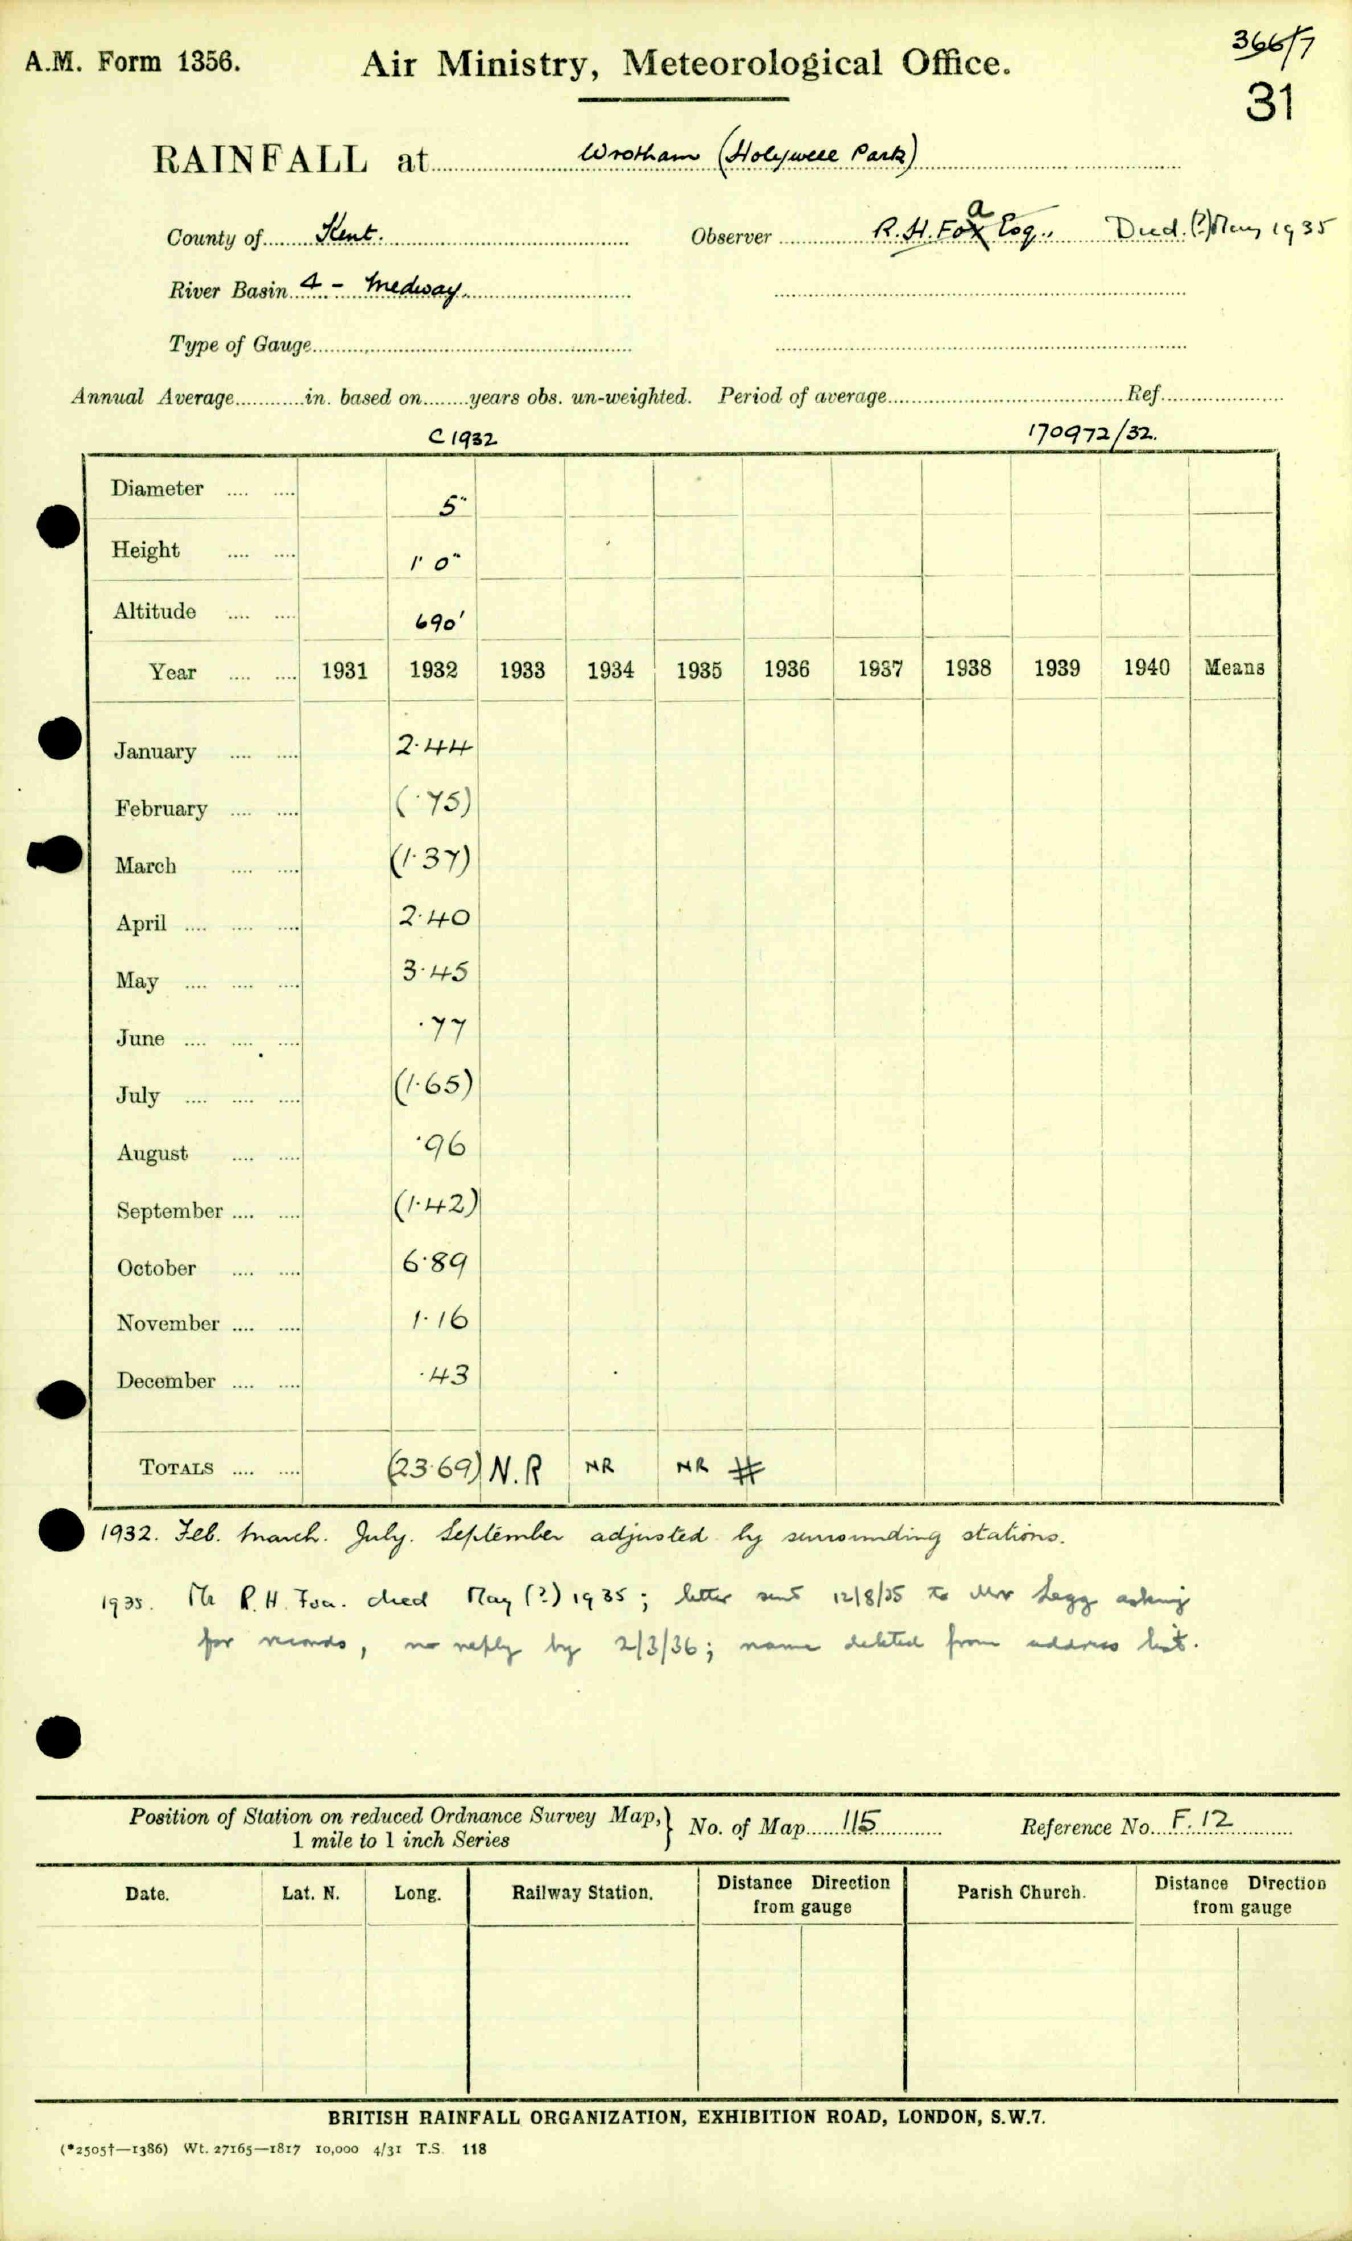 A.M. Form 1356.
Air Ministry, Meteorological Office.
366/7
31
RAINFALL at Wrotham (Holywell Park)
County of Kent. Observer R. H. Fox a Esq., Died (?) May 1935
River Basin 4 - Medway.
Type of Gauge
Annual Average in. based on years obs. un-weighted. Period of average Ref.
C 1932 170972/32.
Diameter .... .... 5"
Height .... .... 1' 0"
Altitude .... .... 690'
Year .... .... 1931 1932 1933 1934 1935 1936 1937 1938 1939 1940 Means
January .... .... 2·44
February .... .... (·75)
March .... .... (1·37)
April .... .... .... 2·40
May .... .... .... 3·45
June .... .... .... ·77
July .... .... .... (1·65)
August .... .... ·96
September .... .... (1·42)
October .... .... 6·89
November .... .... 1·16
December .... .... ·43
TOTALS .... .... (23·69) N.R NR NR #
1932. Feb. March. July. September adjusted by surrounding stations.
1935. Mr R. H. Foa. died May (?) 1935; letter sent 12/8/35 to Mr Legg asking
for records, no reply by 2/3/36; name deleted from address list.
Position of Station on reduced Ordnance Survey Map, } No. of Map 115 Reference No. F. 12
1 mile to 1 inch Series
Date. Lat. N. Long. Railway Station. Distance Direction from gauge Parish Church. Distance Direction from gauge
BRITISH RAINFALL ORGANIZATION, EXHIBITION ROAD, LONDON, S.W.7.
(*2505†—1386) Wt. 27165—1817 10,000 4/31 T.S. 118